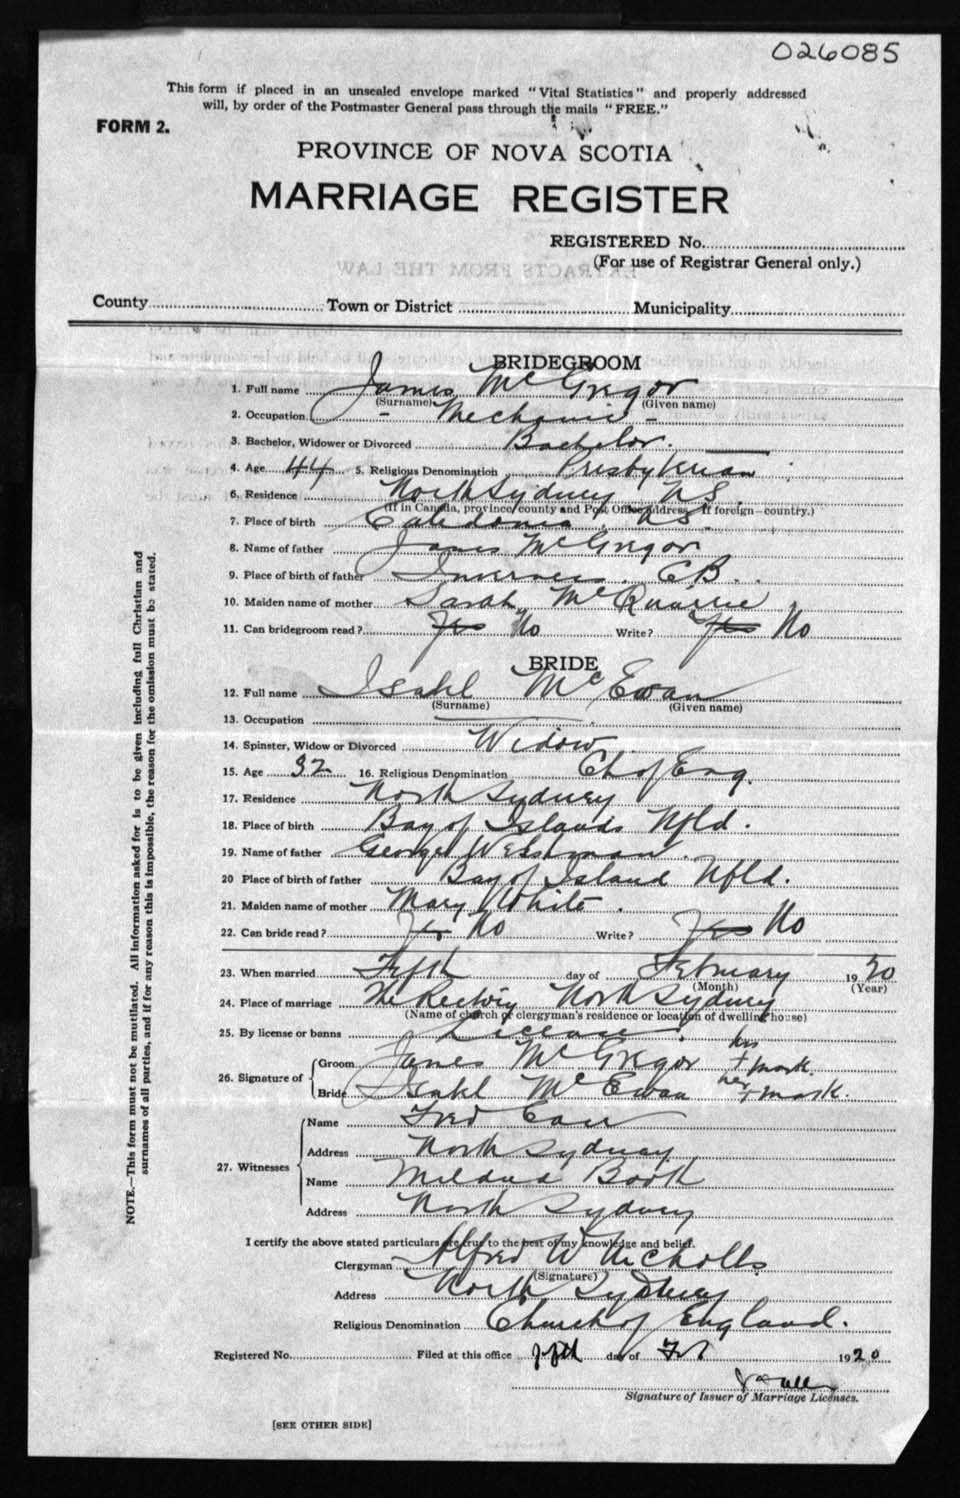 026085
This form if placed in an unsealed envelope marked "Vital Statistics" and properly addressed
will, by order of the Postmaster General pass through the mails "FREE."
FORM 2.
PROVINCE OF NOVA SCOTIA
MARRIAGE REGISTER
REGISTERED No.
(For use of Registrar General only.)
EXTRACTS FROM THE LAW
County Town or District Municipality
BRIDEGROOM
1. Full name James McGregor
(Surname) (Given name)
2. Occupation - Mechanic -
3. Bachelor, Widower or Divorced Bachelor.
4. Age 44 5. Religious Denomination Presbyterian
6. Residence North Sydney N.S.
(If in Canada, province, county and Post Office address, if foreign—country.)
7. Place of birth Caledonia, N.S.
8. Name of father James McGregor
9. Place of birth of father Inverness. C.B.
10. Maiden name of mother Sarah McQuarrie
11. Can bridegroom read? Yes No Write? Yes No
BRIDE
12. Full name Isabel McEwan
(Surname) (Given name)
13. Occupation
14. Spinster, Widow or Divorced Widow
15. Age 32 16. Religious Denomination Ch of Eng.
17. Residence North Sydney
18. Place of birth Bay of Islands Nfld.
19. Name of father George
20 Place of birth of father Bay of Island Nfld.
21. Maiden name of mother Mary White.
22. Can bride read? Yes No Write? Yes No
23. When married Fifth day of February 1920
(Month) (Year)
24. Place of marriage The Rectory North Sydney
(Name of church or clergyman's residence or location of dwelling house)
25. By license or banns License.
26. Signature of Groom James McGregor his + mark.
Bride Isabel McEwan her + mark.
27. Witnesses Name Fred
Address North Sydney
Name Mildred Booth
Address North Sydney
I certify the above stated particulars are true to the best of my knowledge and belief.
Clergyman Alfred W Nicholls
(Signature)
Address North Sydney
Religious Denomination Church of England.
Registered No. Filed at this office fifth day of Feb 1920
Signature of Issuer of Marriage Licenses.
[SEE OTHER SIDE]
NOTE.—This form must not be mutilated. All information asked for is to be given including full Christian and
surnames of all parties, and if for any reason this is impossible, the reason for the omission must be stated.